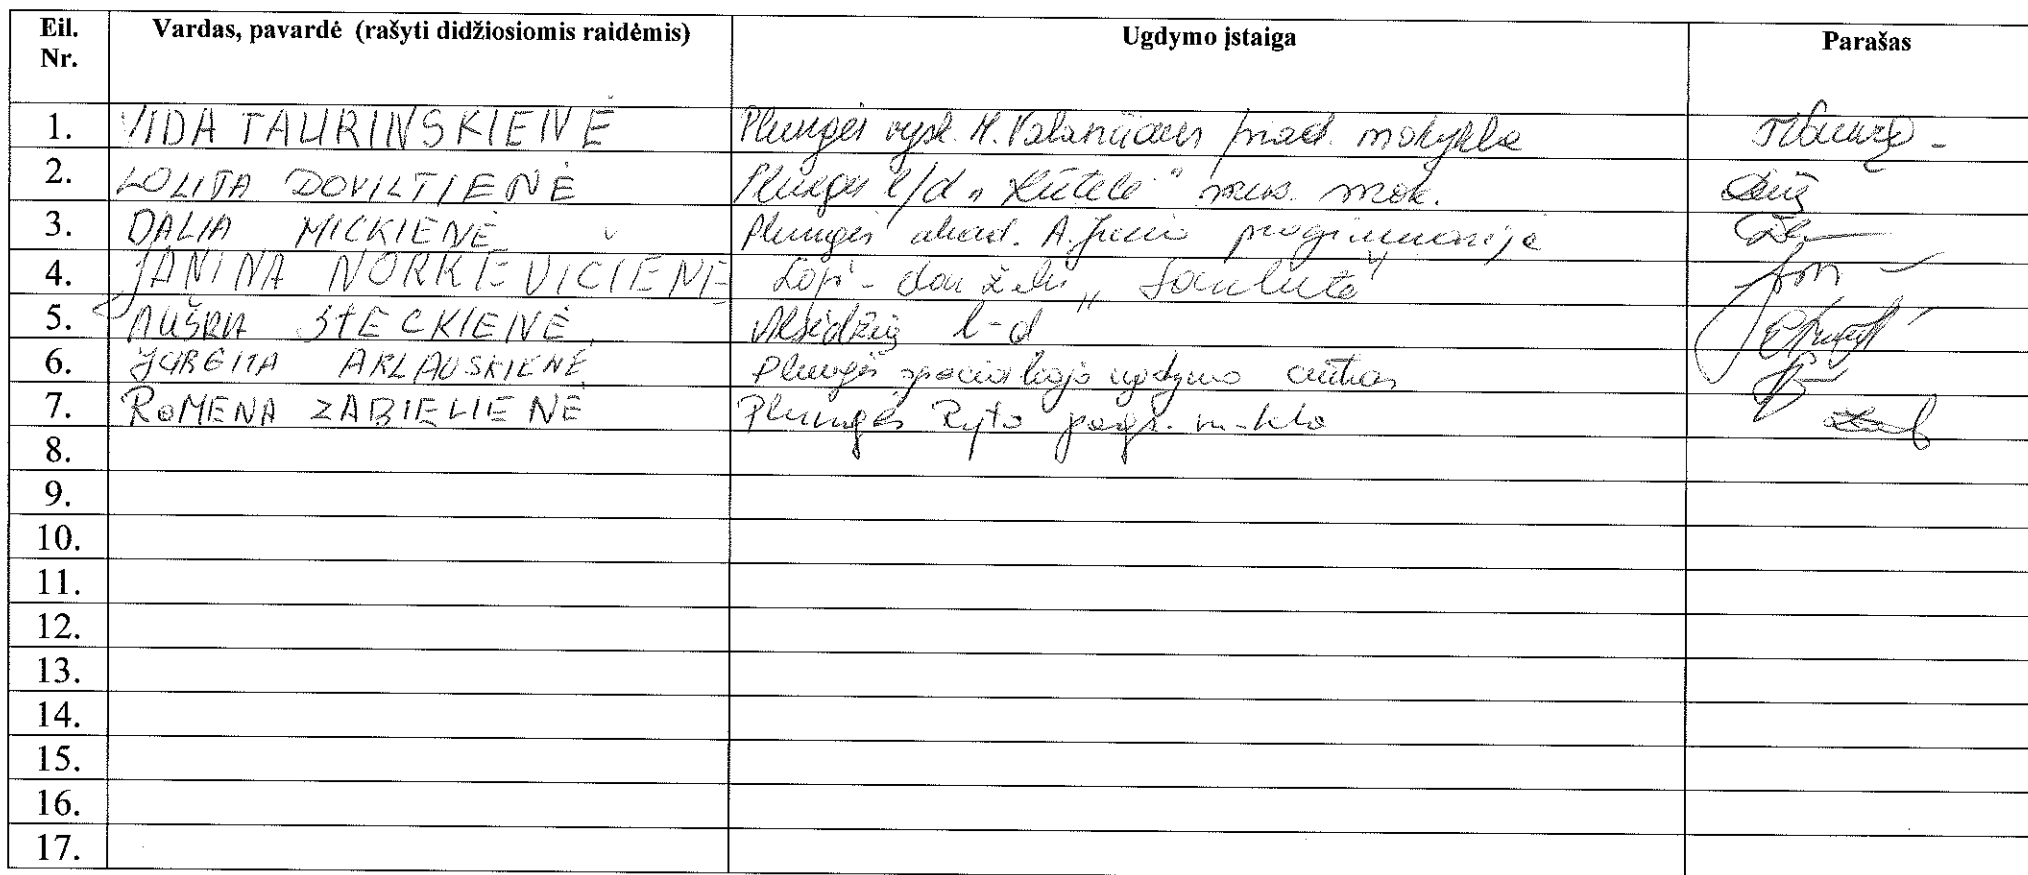 Eil. Nr. Vardas, pavardė (rašyti didžiosiomis raidėmis) Ugdymo įstaiga Parašas
1. VIDA TAURINSKIENĖ Plungės vysk. M. Valančiaus prad. mokykla
2. LOLITA DOVILTIENĖ Plungės l/d „Rūtelė“ mok.
3. DALIA MICKIENĖ Plungės akad. A. Jucio progimnazija
4. JANINA NORKIEVIČIENĖ Lopš-darželis „Saulutė“
5. AUŠRA STECKIENĖ Alsėdžių l-d
6. JURGITA ARLAUSKIENĖ Plungės specialiojo ugdymo centras
7. ROMENA ZABIELIENĖ Plungės Ryto pagr. m-kla
8.
9.
10.
11.
12.
13.
14.
15.
16.
17.